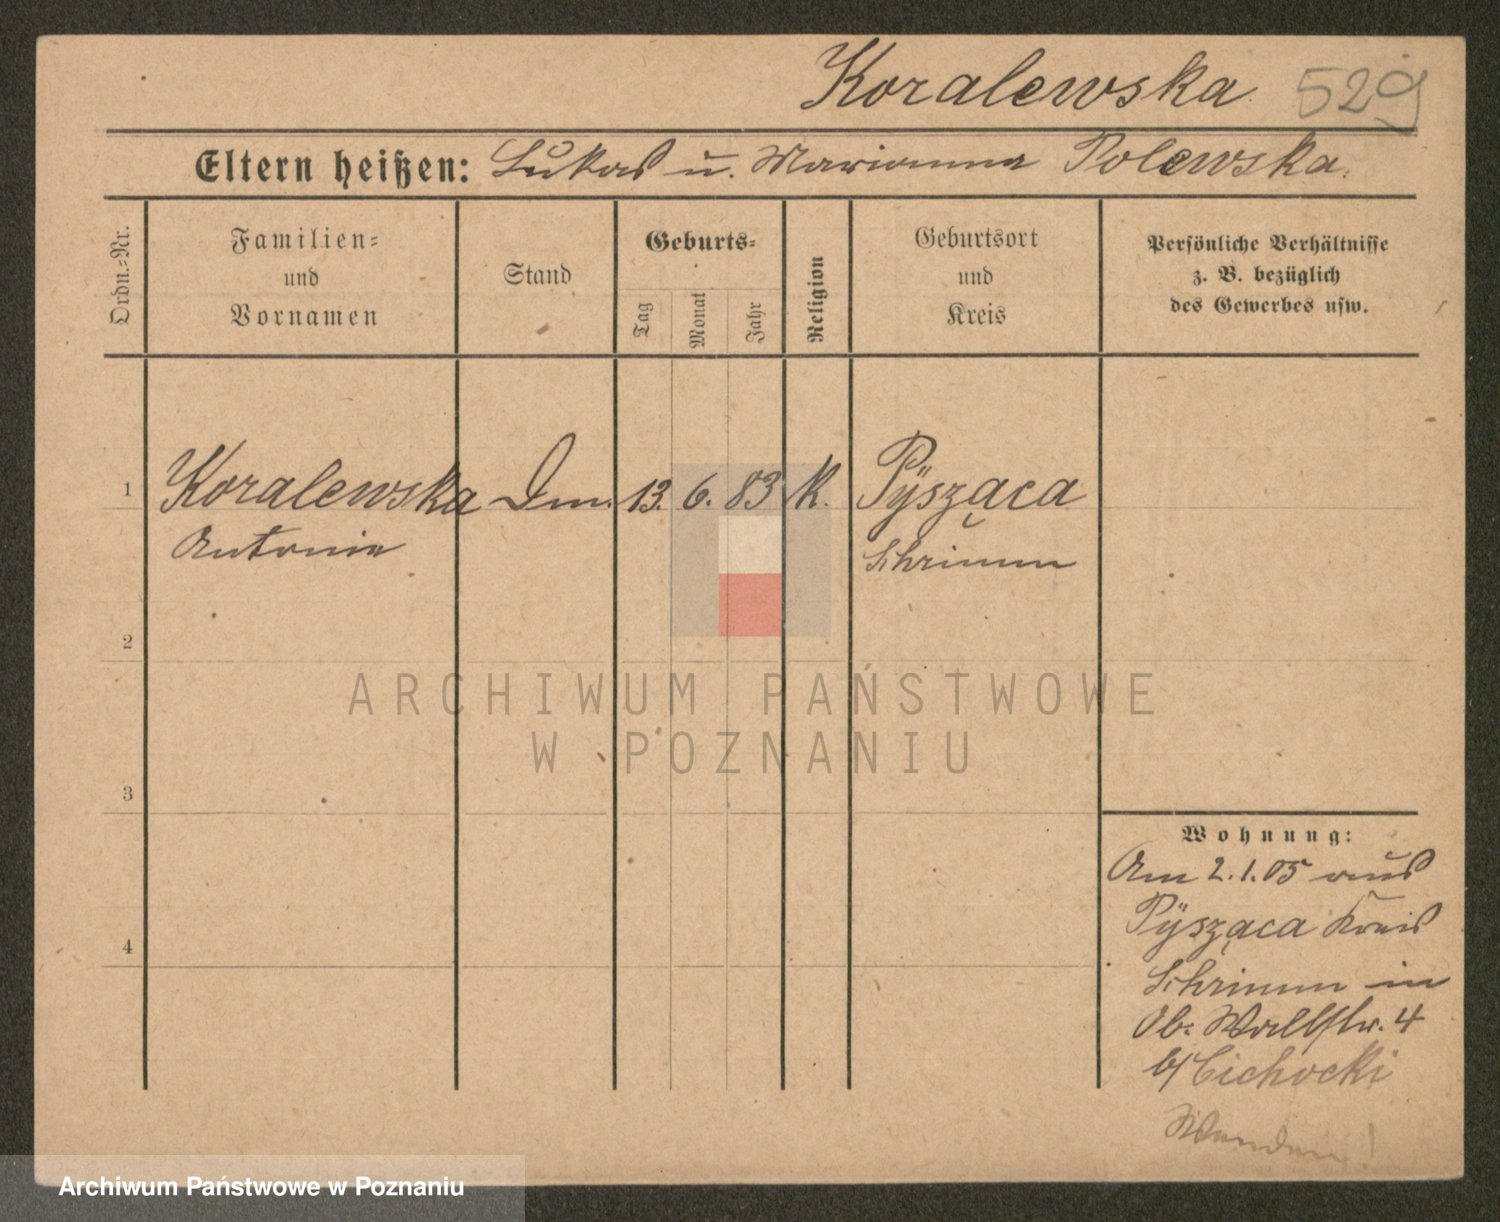 Koralewska 529
Eltern heißen: Lukas u. Marianna Polewska.
Ordn.-Nr.
Familien-
und
Vornamen
Stand
Geburts-
Tag
Monat
Jahr
Religion
Geburtsort
und
Kreis
Persönliche Verhältnisse
z. B. bezüglich
des Gewerbes usw.
1 Koralewska Dm. 13. 6. 83 K. Pÿsząca
Antonie Schrimm
2
3
4
Wohnung:
Am 2.1.05 aus
Pÿsząca Kreis
Schrimm in
Ob. Wallstr. 4
b/Cichocki
Wenden!
ARCHIWUM PAŃSTWOWE
W POZNANIU
Archiwum Państwowe w Poznaniu